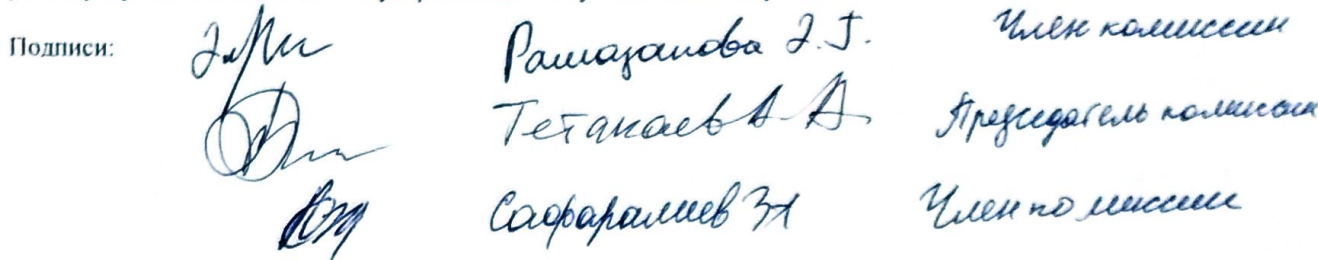 Подписи: Рамазанова Э.Г. Член комиссии
Тетакаев А.А. Председатель комиссии
Сафаралиев З.А. Член комиссии